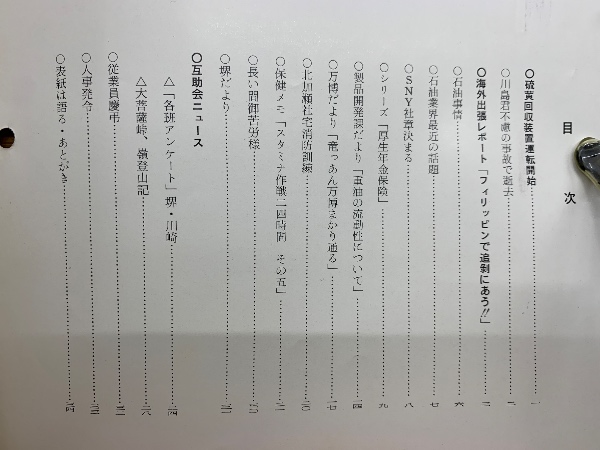 目次
○硫黄回収装置運転開始……一
○川島君不慮の事故で逝去……二
○海外出張レポート「フィリッピンで追剝にあう!!」……三
○石油事情……六
○石油業界最近の話題……七
○SNY社章決まる……八
○シリーズ「厚生年金保険」……九
○製品開発課だより「重油の流動性について」……一四
○万博だより「竜っあん万博まかり通る」……一七
○北加瀬社宅消防訓練……二〇
○保健メモ「スタミナ作戦二四時間 その五」……二一
○長い間御苦労様……
○堺だより……
○互助会ニュース
△「各班アンケート」堺・川崎……二四
△大菩薩峠、嶺登山記……二八
○従業員慶弔……
○人事発令……
○表紙は語る・あとがき……